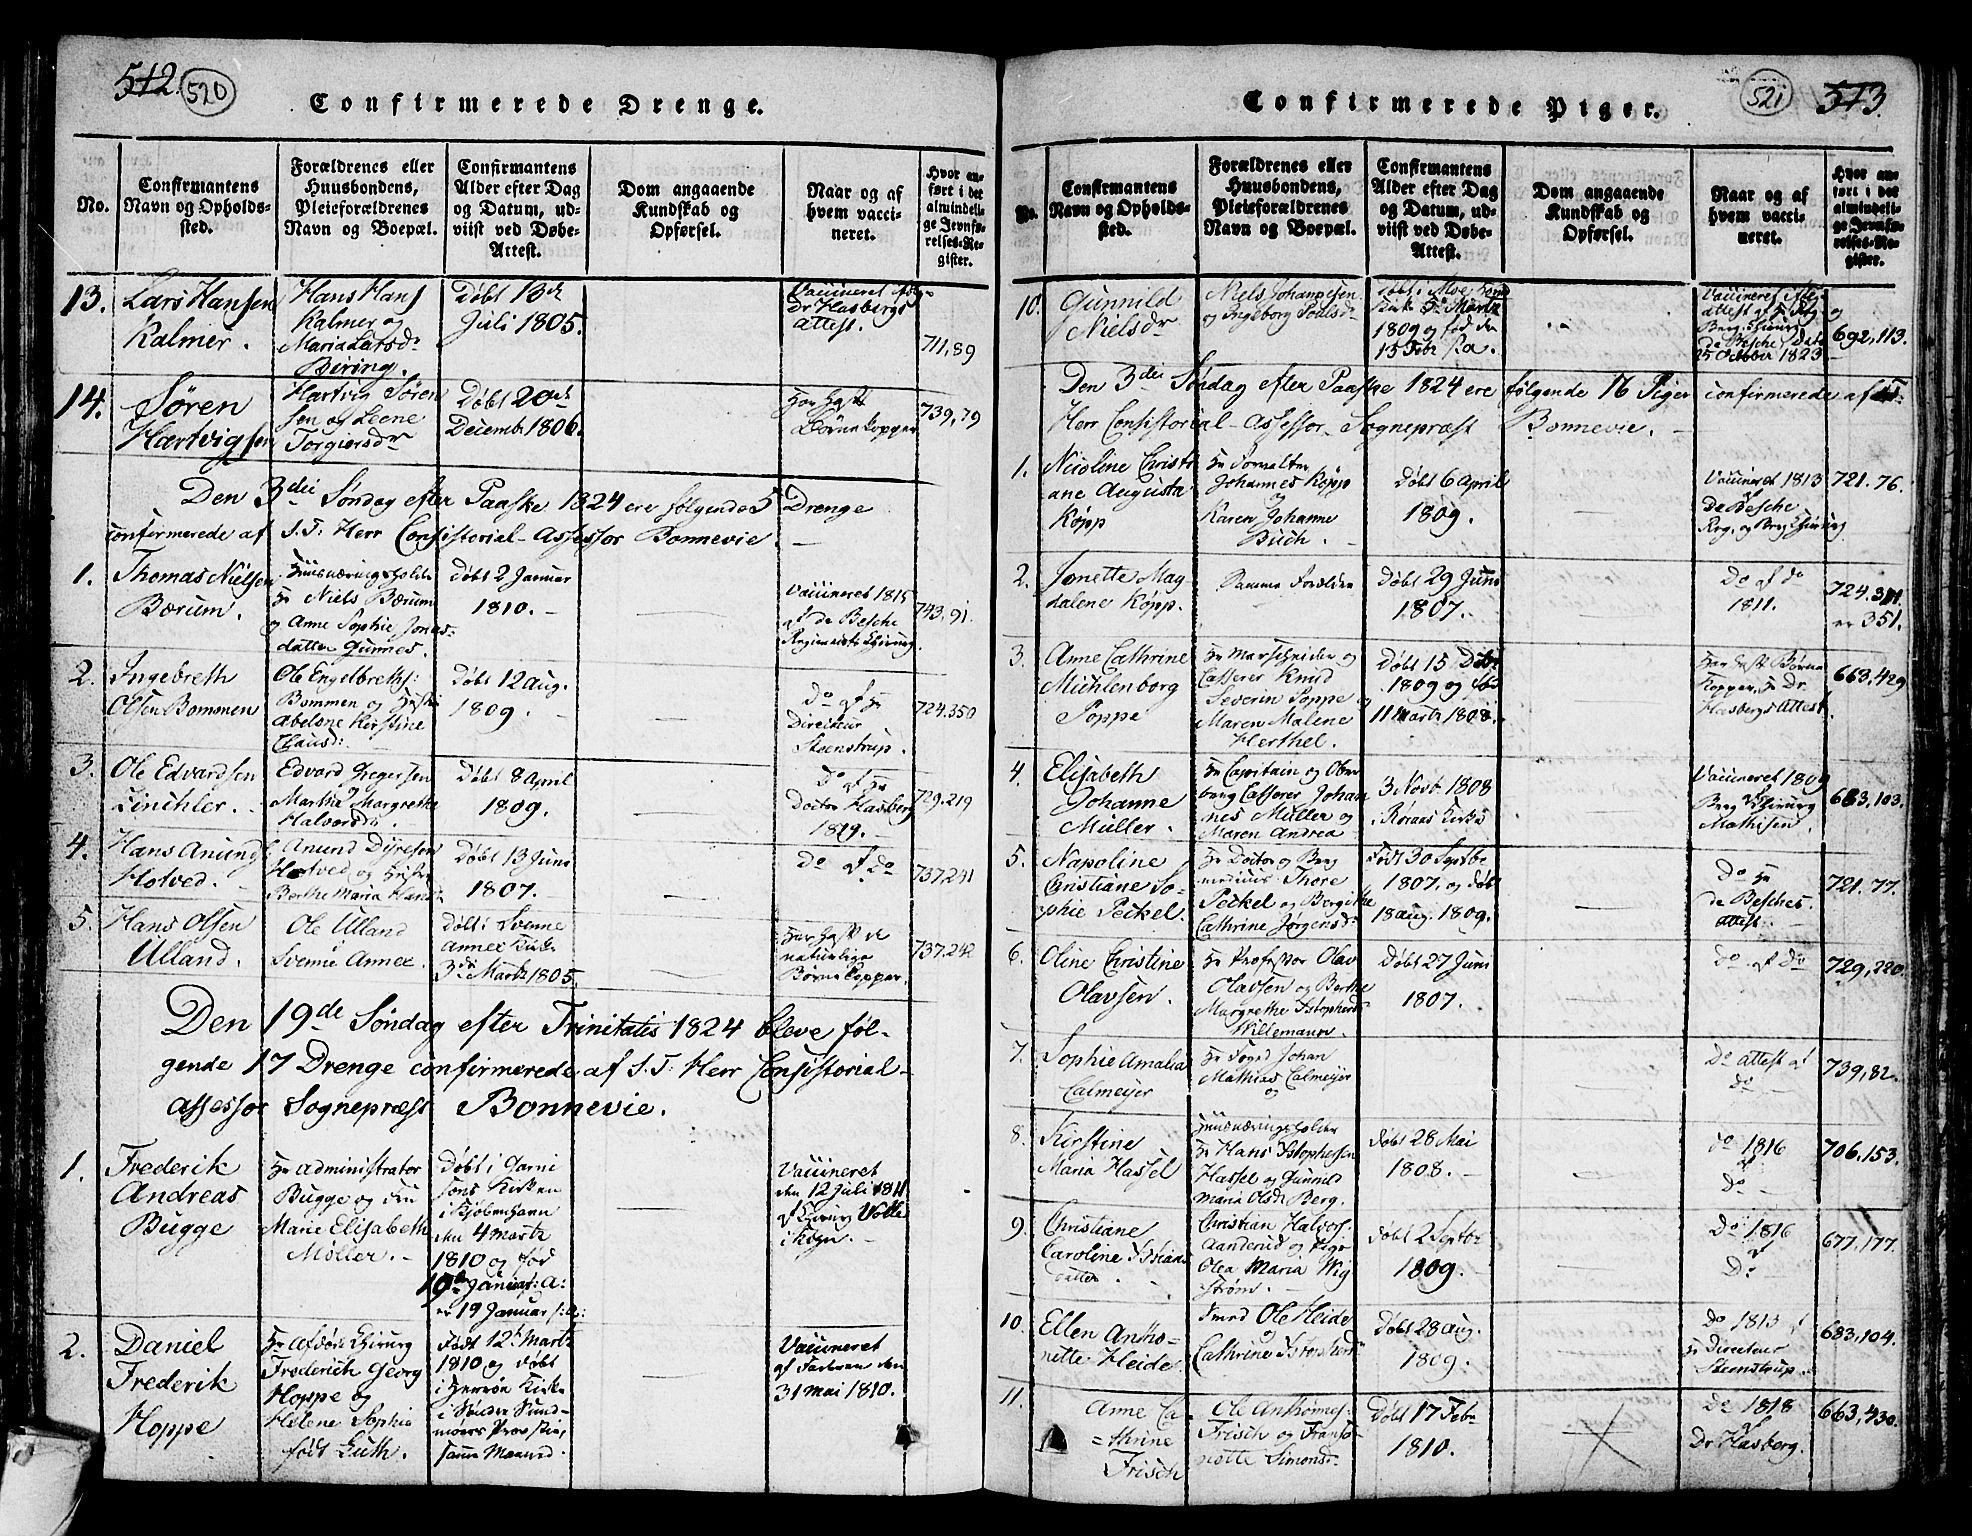 512. 520
Confirmerede Drenge.
No.
Confirmantens
Navn og Opholds-
sted.
Forældrenes eller
Huusbondens,
Pleieforældrenes
Navn og Boepæl.
Confirmantens
Alder efter Dag
og Datum, ud-
viist ved Døbe-
Attest.
Dom angaaende
Kundskab og
Opførsel.
Naar og af
hvem vacci-
neret.
Hvor an-
ført i det
almindeli-
ge Jevnfø-
relses-Re-
gister.
13.
Lars Hansen
Kalmer.
Hans Hans
Kalmer og
Maria Larsdr
Biring.
Døbt 13de
Juli 1805.
Vaccineret
Dr Hasbergs
attest.
711,89
14.
Søren
Hartvigsen
Hartvig Søren
sen og Leene
Torgiersdr
Døbt 20de
Decemb. 1806.
Har havt
Børnekopper
739,79
Den 3die Søndag efter Paaske 1824 ere følgende 5 Drenge
confirmerede af S.T. Herr Consistorial-Assessor Bonnevie.
1.
Thomas Nielsen
Bærum.
Huusnæringsholder
Hr Niels Bærum
og Anne Sophie Jonas-
datter Gunnes.
Døbt 2 Januar
1810.
Vaccineret 1815
af de Besche
Regiments Chirurg
743,91.
2.
Ingebreth
Olsen Bommen
Ole Engelbreths:
Bommen og
Abelone Kirstine
Clausd:
Døbt 12 Aug.
1809.
Do af Hr
Directeur
Steenstrup.
724.350
3.
Ole Edvardsen
Linchler.
Edvard Gregersen
Marthe Margrethe
Halvorsdr.
Døbt 8 April
1809.
Do af Hr
Doctor Hasberg
1819.
729.219
4.
Hans Anunds
Hotved.
Anund Dyresen
Hotved og
Berthe Maria Hansdr
Døbt 13 Juni
1807.
Do af do
737.241
5.
Hans Olsen
Ulland.
Ole Ulland
Svenne Annex.
Døbt i Svenne
Annex Kirke
3de Marts 1805.
Har havt de
naturlige
Børnekopper.
737.242
Den 19de Søndag efter Trinitatis 1824 bleve føl-
gende 17 Drenge confirmerede af S.T. Herr Consistorial-
assessor Sognepræst Bonnevie.
1.
Frederik
Andreas
Bugge
Hr Administrator
Bugge og
Marie Elisabeth
Møller.
Døbt i Garni
sons Kirken
i Kjøbenhavn
den 4 Marts
1810 og fød
er 19 Januar s: a:
Vaccineret
den 12 Juli 1811
af Chirurg Volle
i Kogn.
2.
Daniel
Frederik
Hoppe
Hr afdøde Chirurg
Frederich Georg
Hoppe og
Helene Sophie
født Luth.
Født 12te Marts
1810 og døbt
i Herrøe Kirke
i Søndre Sund-
moers Provstie,
samme Maaned.
Vaccineret
af Faderen den
31 Mai 1810.
521 513
Confirmerede Piger.
No.
Confirmantens
Navn og Opholds-
sted.
Forældrenes eller
Huusbondens,
Pleieforældrenes
Navn og Boepæl.
Confirmantens
Alder efter Dag
og Datum, ud-
viist ved Døbe-
Attest.
Dom angaaende
Kundskab og
Opførsel.
Naar og af
hvem vacci-
neret.
Hvor an-
ført i det
almindeli-
ge Jevnfø-
relses-Re-
gister.
10.
Gunnild
Nielsdr
Niels Johannesen
og Ingeborg Poulsdr
Døbt i Moe
Kirke 5te Marts
1809 og fød den
15 Febr
Vaccineret
attest af
Berg Chirurg
de Besche Dato
25 October 1823
692,113.
Den 3die Søndag efter Paaske 1824 ere følgende 16 Piger confirmerede af
Herr Consistorial-Assessor Sognepræst Bonnevie.
1.
Nicoline Christi
ane Augusta
Køpp
Hr Forvalter
Johannes Køpp
og
Karen Johanne
Buch.
Døbt 6 April
1809.
Vaccineret 1813
af
de Besche
Reg. og Berg Chirurg
721.76.
2.
Jonette Mag
dalene Køpp.
Samme Forældre
Døbt 29 Juni
1807.
Do af do
1811.
724.
er 351.
3.
Anne Cathrine
Mühlenborg
Poppe
Hr Marscheider og
Casserer Knud
Severin Poppe
Maren Malene
Herthel.
Døbt 15
1809 og
11 Marts 1808.
Har havt Børne
Kopper, Hr Dr.
Hasbergs Attest
663,429
4.
Elisabeth
Johanne
Müller.
Hr Capitain og Ober
berg Casserer Johan
nes Müller og
Maren Andrea
3 Novb. 1808
Røraas Kirke
Vaccineret 1809
af
Berg Chirurg
Mathisen.
683,103.
5.
Napoline
Christiane So-
phie Peckel.
Hr Doctor og Berg
medicus Thore
Peckel og Birgithe
Cathrine Jørgensdr
Født 30 Septbr
1807. og døbt
18 Aug. 1809.
Do Hr
de Besches
attest.
721.77.
6.
Oline Christine
Olavsen.
Hr Professor Olav
Olavsen og Berthe
Margrethe Stophersdr
Willemann.
Døbt 27 Juni
1807.
Do af Do
729,220.
7.
Sophie Amalia
Calmeyer
Hr Foged Johan
Mathias Calmeyer
og
Do attest af
do
739,82.
8.
Kirstine
Maria Hassel
Huusnæringsholder
Hr Hans Stophersen
Hassel og Gunnild
Maria Olsdr Berg.
Døbt 28 Mai
1808.
do 1816
af
do
706,153.
9.
Christiane
Caroline Christians
datter
Christian Halvors:
Aanderud og Pige
Olea Maria Wig
Strøm.
Døbt 2 Septbr
1809.
Do 1816
af
Do
677,177.
10.
Ellen Antho-
nette Heide.
Smed Ole Heide
og
Cathrine Stophersdr
Døbt 28 Aug.
1809.
do 1813 af
Hr Directeur
Steenstrup.
683,104.
11.
Anne Ca-
=thrine
Frisch
Ole Anthonnes-
Frisch og Franso
nette Simonsdr.
Døbt 17 Febr
1810.
Do 1818
af
Dr Hasberg.
663,430.